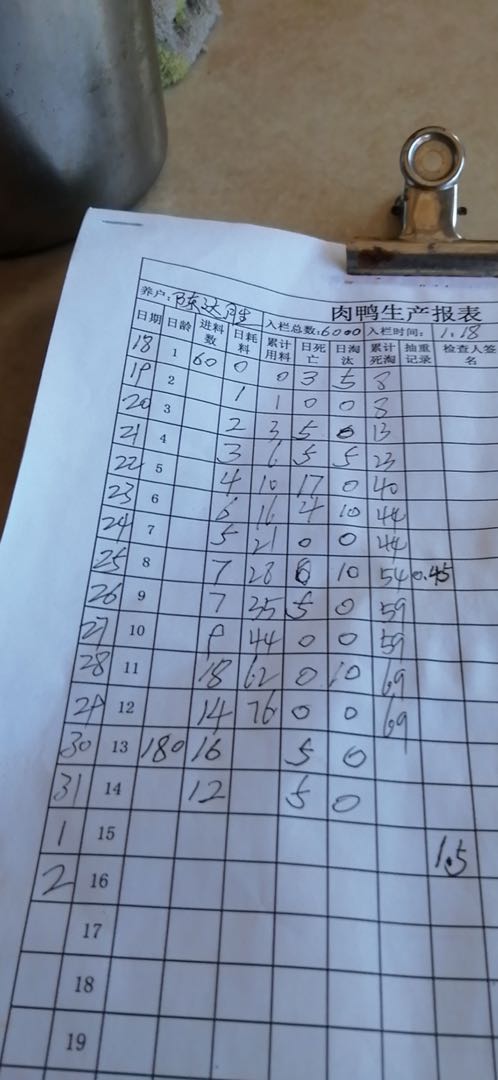 肉鸭生产报表
养户: 陈达胜 入栏总数:6000 入栏时间: 1.18
日期 日龄 进料数 日耗料 累计用料 日死亡 日淘汰 累计死淘 抽重记录 检查人签名
18 1 60 0 0 3 5 8
19 2 1 1 0 0 8
20 3 2 3 5 0 13
21 4 3 6 5 5 23
22 5 4 10 17 0 40
23 6 6 16 4 10 44
24 7 5 21 0 0 44
25 8 7 28 0 10 54 0.45
26 9 7 35 5 0 59
27 10 9 44 0 0 59
28 11 18 62 0 10 69
29 12 14 76 0 0 69
30 13 180 16 5 0
31 14 12 5 0
1 15 1.5
2 16
17
18
19